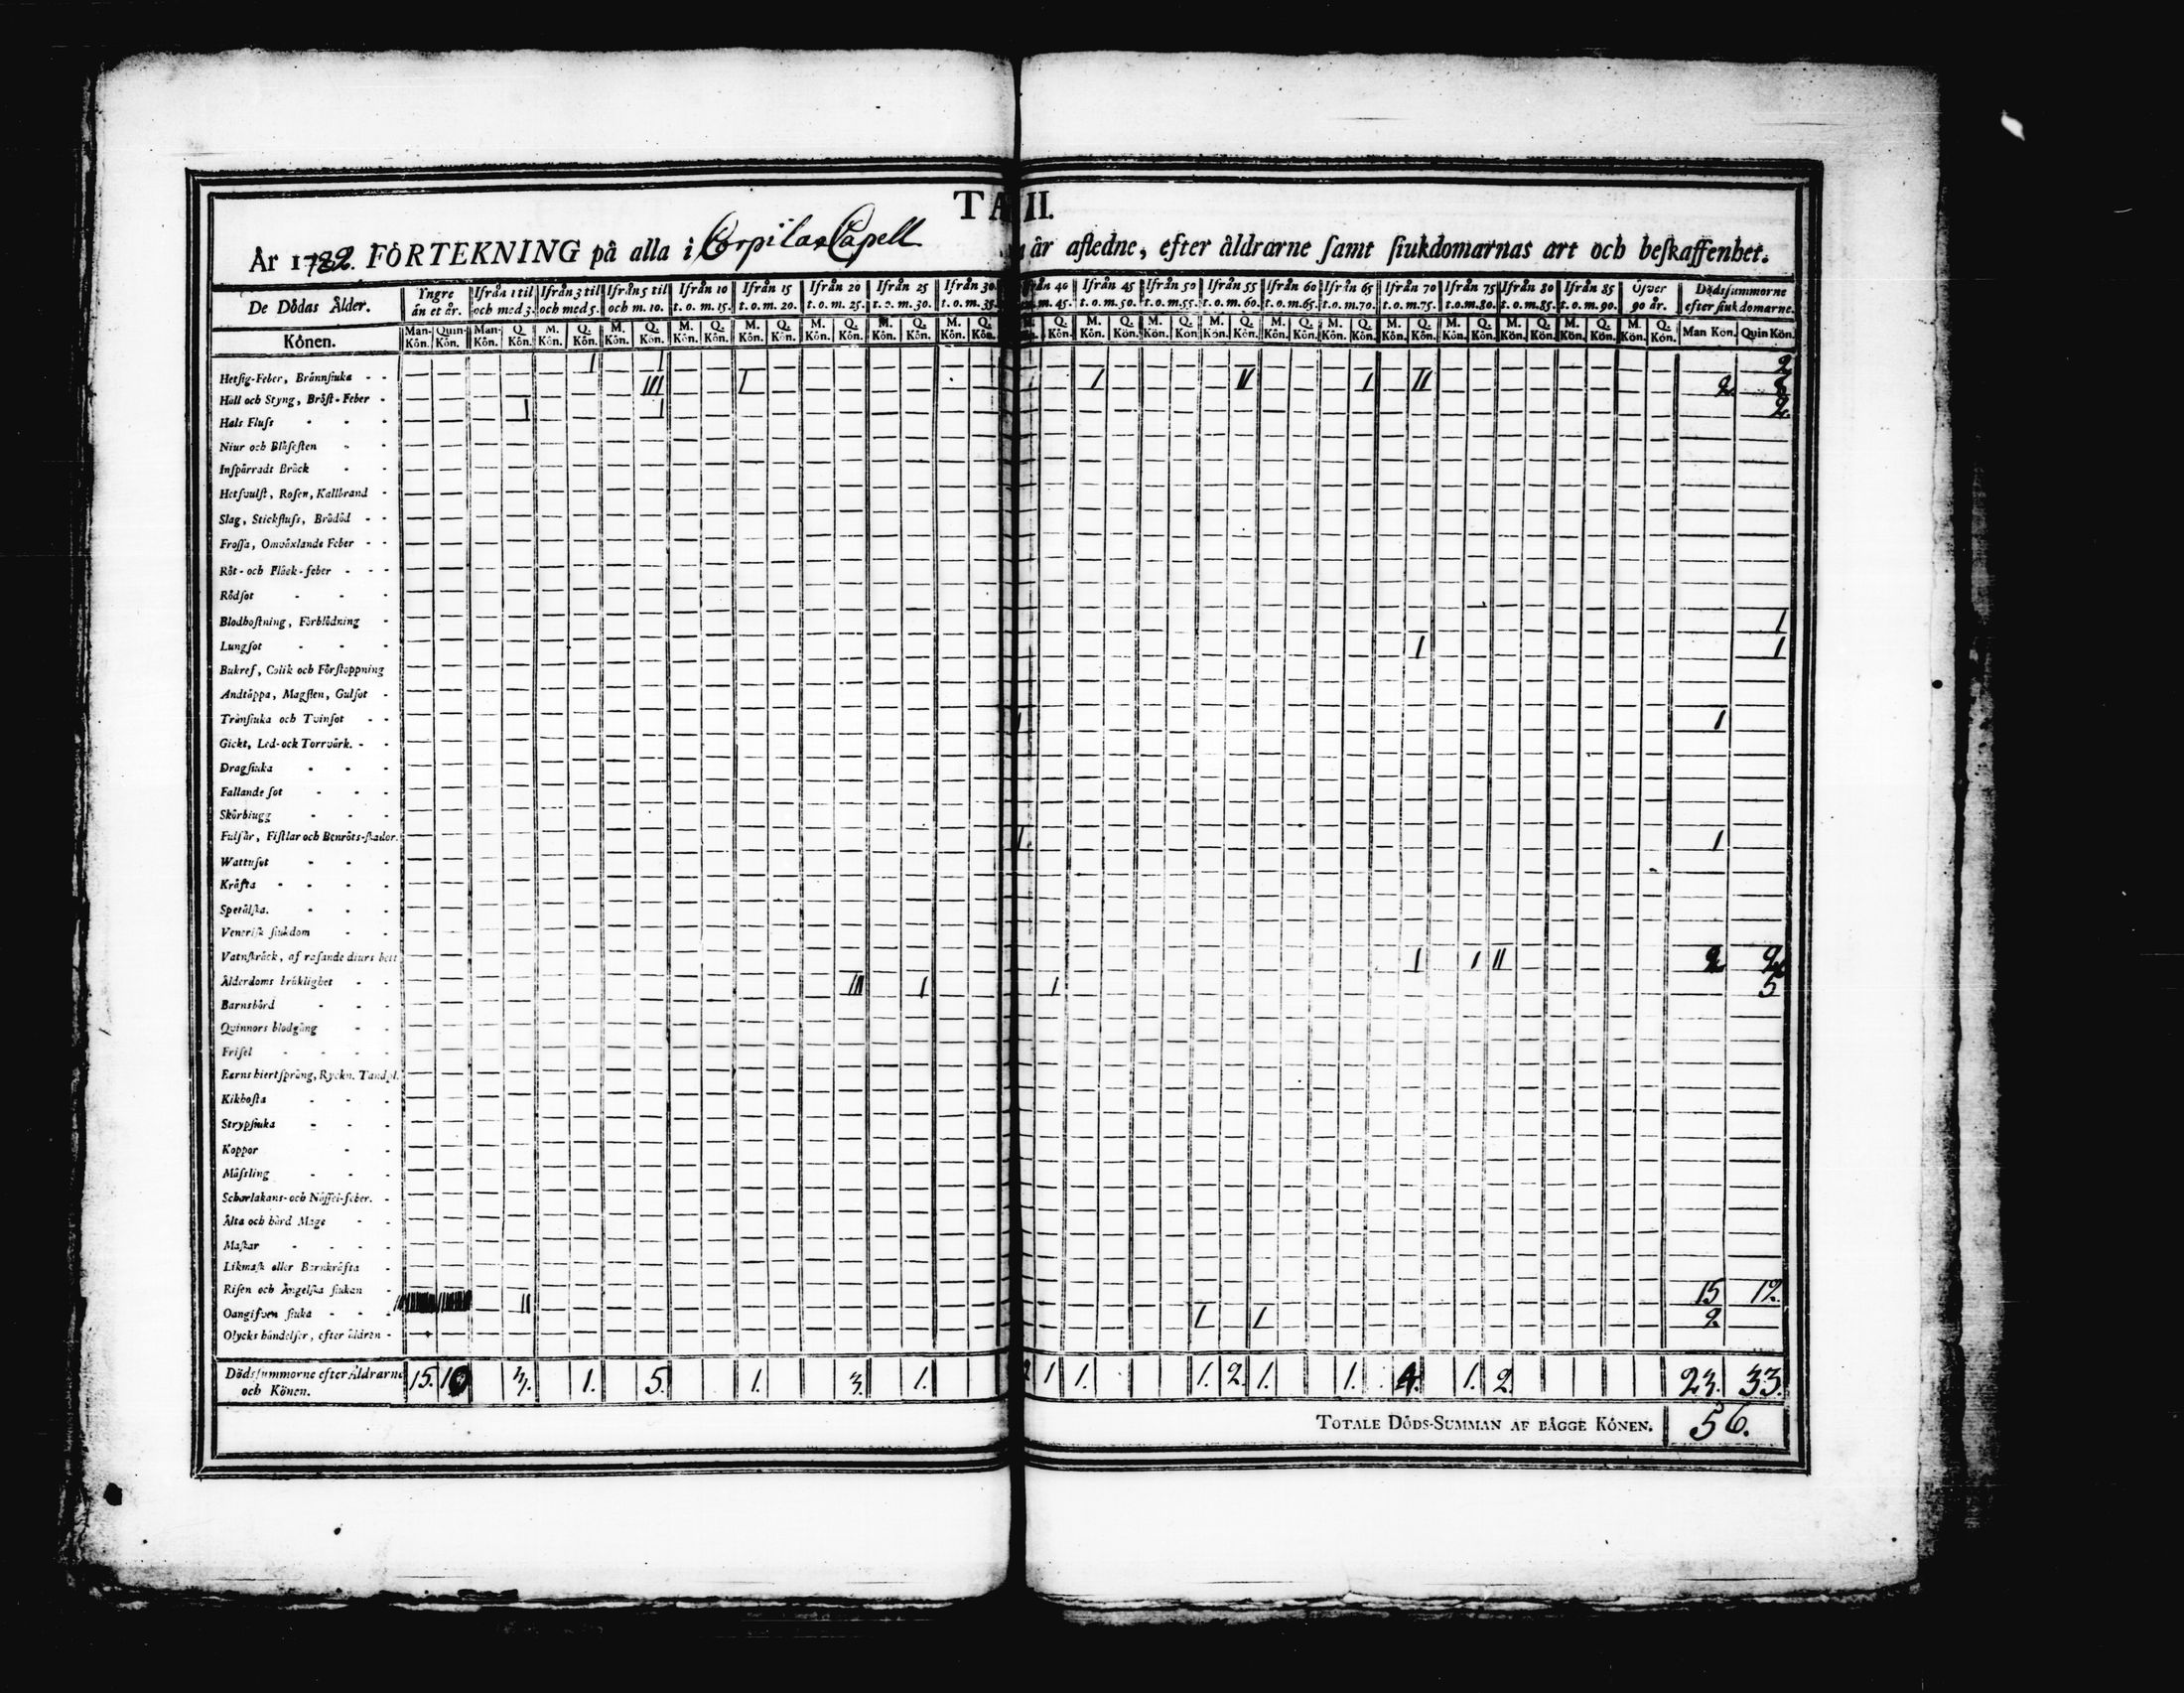 TA II.
År 1782. FÖRTEKNING på alla i Corpilax Capell år afledne, efter åldrarne samt siukdomarnas art och beskaffenhet.
De Dödas Ålder. Yngre än et år. Ifrån 1 til och med 3. Ifrån 3 til och med 5. Ifrån 5 til och m. 10. Ifrån 10 t. o. m. 15. Ifrån 15 t. o. m. 20. Ifrån 20 t. o. m. 25. Ifrån 25 t. o. m. 30. Ifrån 30 t. o. m. 35. 40 m. 45. Ifrån 45 t. o. m. 50. Ifrån 50 t. o. m. 55. Ifrån 55 t. o. m. 60. Ifrån 60 t. o. m. 65. Ifrån 65 t. o. m. 70. Ifrån 70 t. o. m. 75. Ifrån 75 t. o. m. 80. Ifrån 80 t. o. m. 85. Ifrån 85 t. o. m. 90. Öfver 90 år. Dödssummorne efter siukdomarne.
Könen. Man-Kön. Quin-Kön. Man-Kön. Q. Kön. M. Kön. Q. Kön. M. Kön. Q. Kön. M. Kön. Q. Kön. M. Kön. Q. Kön. M. Kön. Q. Kön. M. Kön. Q. Kön. M. Kön. Q. Kön. Q. Kön. M. Kön. Q. Kön. M. Kön. Q. Kön. M. Kön. Q. Kön. M. Kön. Q. Kön. M. Kön. Q. Kön. M. Kön. Q. Kön. M. Kön. Q. Kön. M. Kön. Q. Kön. M. Kön. Q. Kön. M. Kön. Q. Kön. Man Kön. Quin Kön.
Hetsig-Feber, Brännsiuka - - I I 2
Håll och Styng, Bröst-Feber - III I I II I II 2 8
Hals Fluss - - - I I 2.
Niur och Blåsesten - -
Inspärradt Bråck - -
Hetsvulst, Rosen, Kallbrand -
Slag, Stickfluss, Brådöd - -
Frossa, Omväxlande Feber - -
Röt- och Fläck-feber - - -
Rödsot - - -
Blodhostning, Förblödning - 1
Lungsot - - - I 1
Bukref, Colik och Förstoppning
Andtäppa, Magsten, Gulsot -
Trånsiuka och Tvinsot - - I 1
Gickt, Led- ock Torrvärk. - -
Dragsiuka - - -
Fallande sot - - -
Skörbiugg - - -
Fulsår, Fistlar och Benröts-skador. I. 1
Wattusot - - -
Kräfta - - - -
Spetälska. - - -
Venerisk siukdom - -
Vatnskräck, af rasande diurs bett I I II 2 2
Ålderdoms bräklighet - - III I I 5
Barnsbörd - - -
Qvinnors blodgång - -
Frisel - - - -
Barns hiertsprång, Ryckn. Tandpl.
Kikhosta - - -
Strypsiuka - - -
Koppor - -
Mässling - - -
Scharlakans- och Nässel-feber. -
Älta och hård Mage - -
Maskar - - - -
Likmask eller Barnkräfta -
Risen och Ängelska siukan - 15 12.
Oangifven siuka - - - II I I 2.
Olycks händelser, efter åldren -
Dödssummorne efter Åldrarne och Könen. 15. 10 3. 1. 5. 1. 3. 1. 2. 1 1. 1. 2. 1. 1. 4. 1. 2. 23. 33.
TOTALE DÖDS-SUMMAN AF BÅGGE KÖNEN. 56.